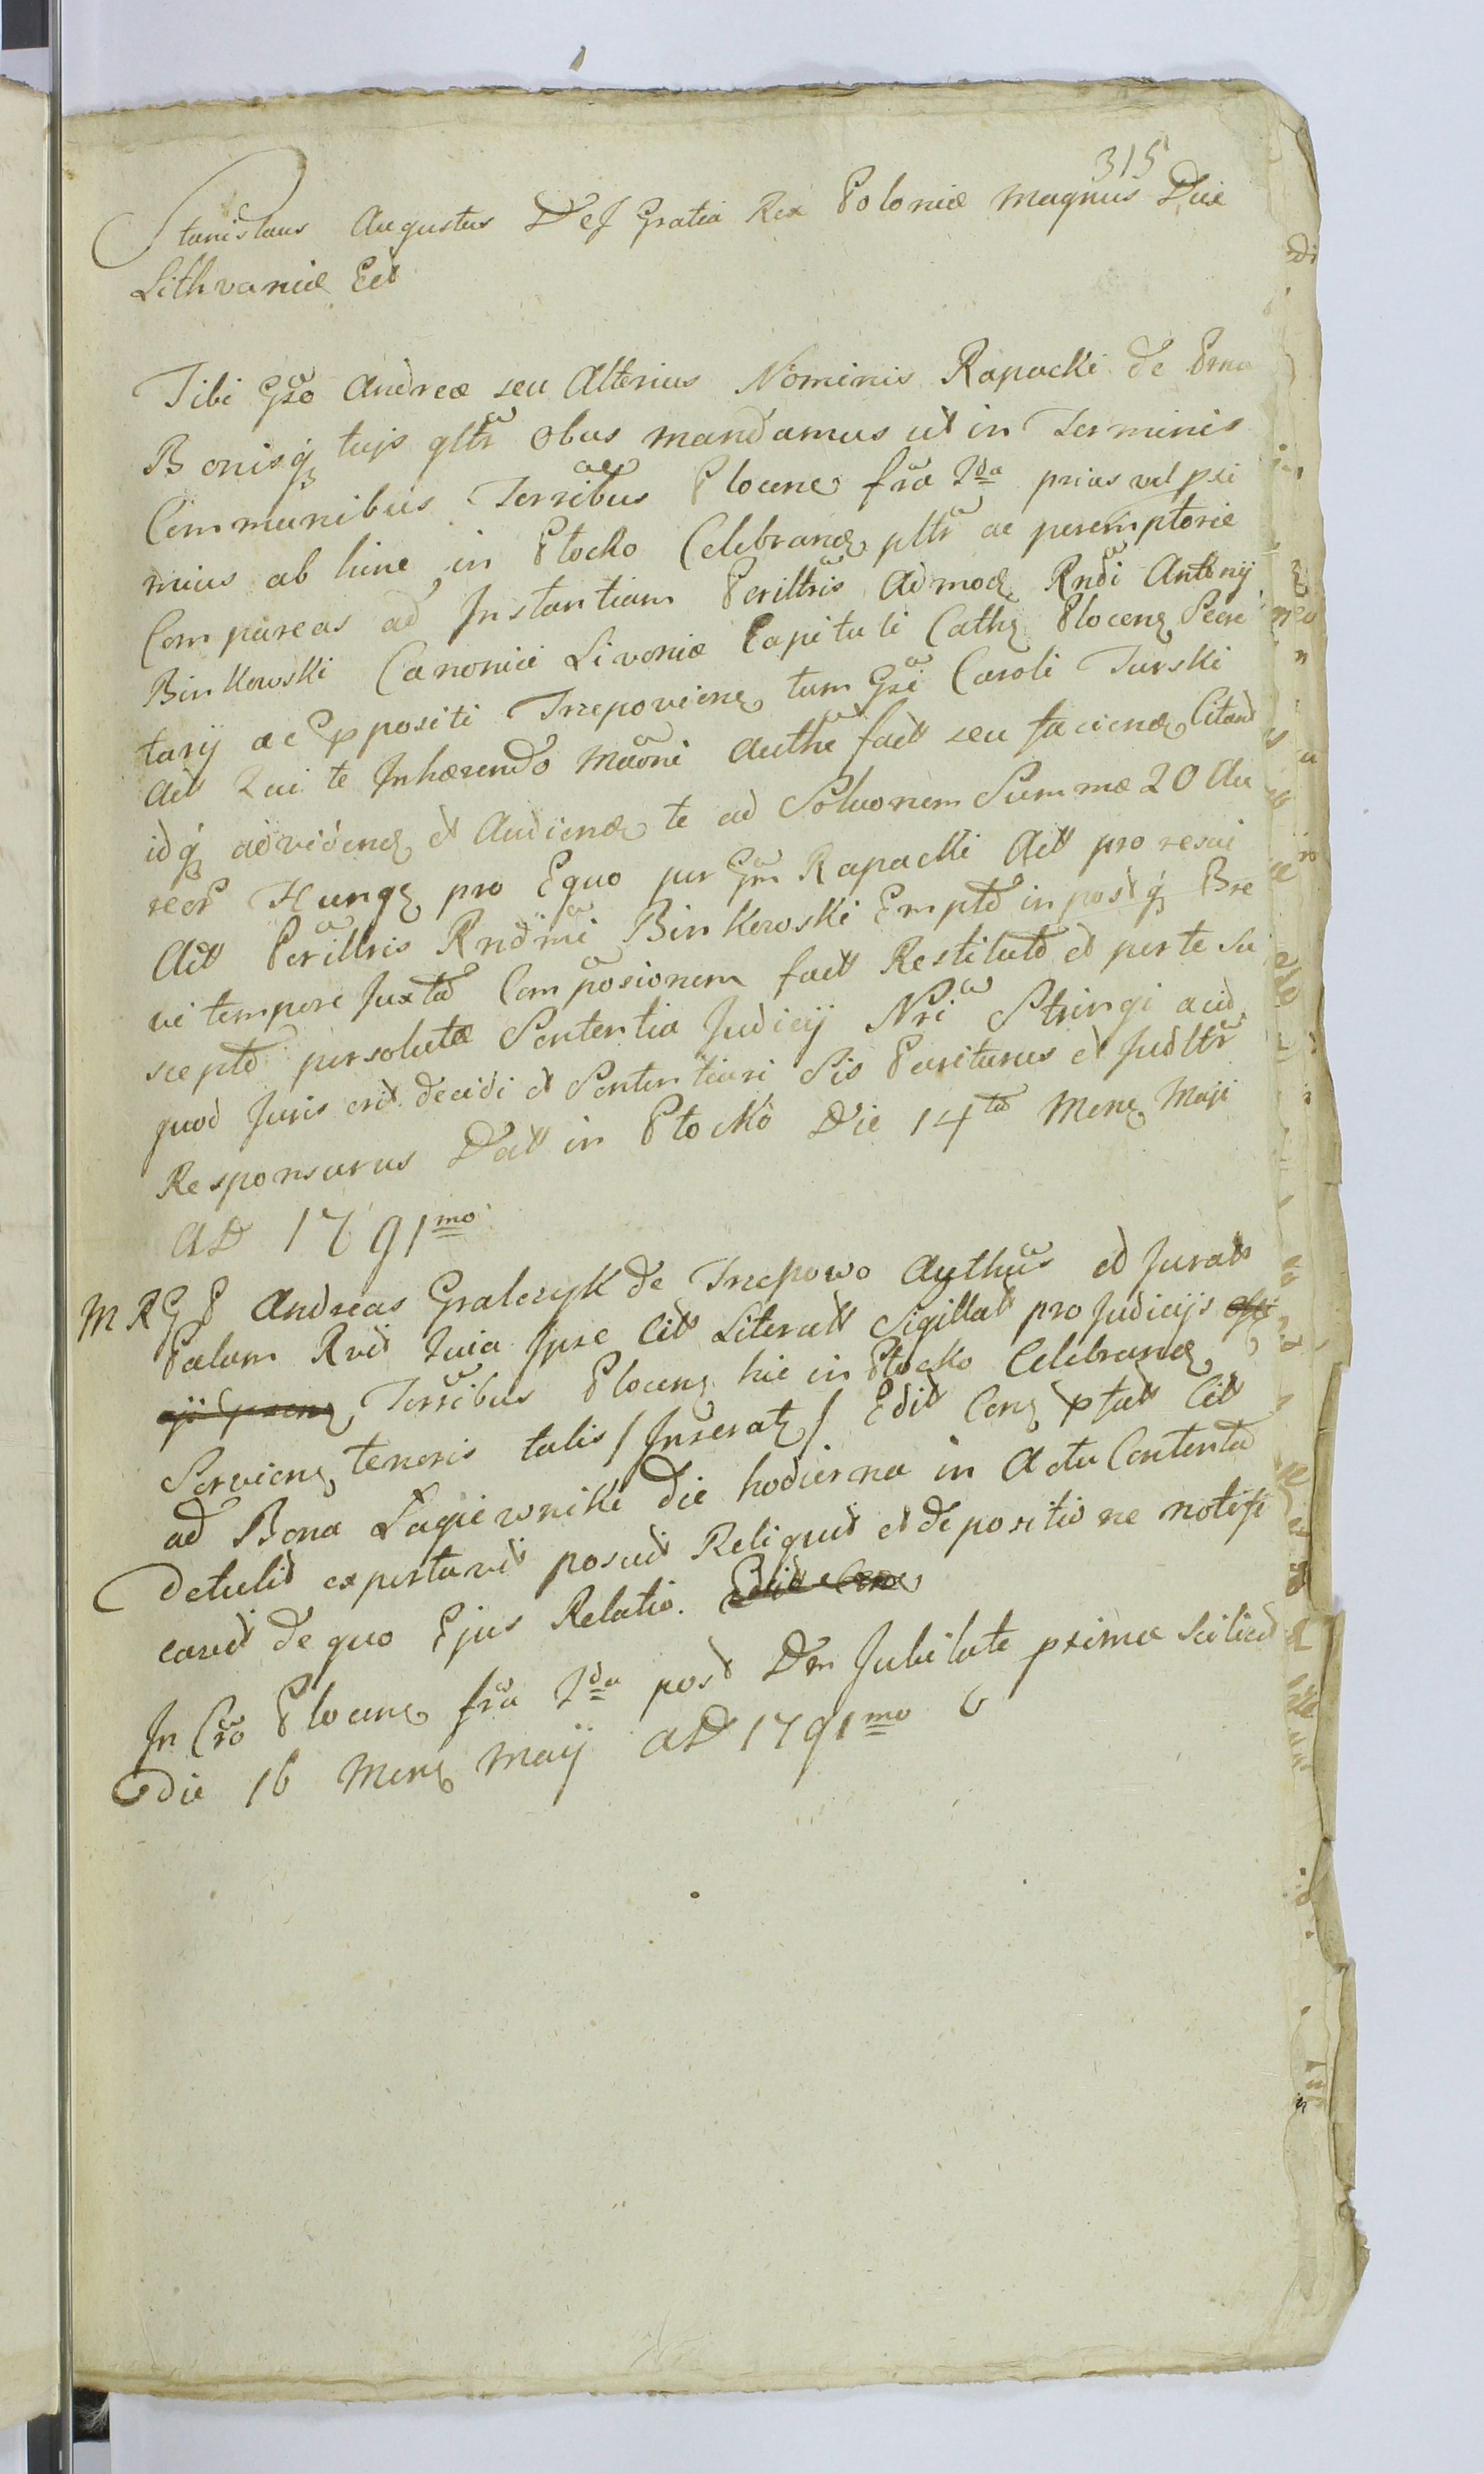 315
Stanislaus Augustus Dei Gratia Rex Poloniæ Magnus Dux
Lithvaniæ Ect
Tibi Gso Andreæ seu Alterius Nominis Rapacki de Prna
Bonisq tuis gltr Obus mandamus ut in Terminis
Communibus Terribus Plocen fria 2da prius vel pri
mius ab hinc in Płocko Celebrand pltr ac peremptorie
Compareas ad Instantiam Perilltris Admod Rndi Antonij
Binkowski Canonici Livoniæ Capituli Cath Plocen Secre
tarij ac Ppositi Trzepovien tum Gsi Caroli Turski
Act Qui te Inhærendo Maoni Authe factt seu faciend Citant
idq advidend et Audiend te ad Soluonem Summæ 20 Au
reor Hung pro Equo per Gm Rapacki Actt pro resui
Actt Perilltris Rndmi Binkowski Empto in postq Bre
vi tempore Juxta Composionem factt Restituto et per te su
scepto persolutæ Sententia Judicij Nri Stringi aud
quod Juris erit decidi et Sententiari Sis Pariturus et Judltr
Responsurus Datt in Płocko Die 14ta Mens Maji
AD 1791mo
MRGP Andreas Gralczyk de Trzepowo Authus et Jurats
Palam Rvit Quia Ipse Citt Literatt Sigillatt pro Judicijs
Terribus Plocen hic in Płocko Celebrand
Servien tenoris talis / Inserat / Edit Cons ptatt Citt
ad Bona Łagiewniki die hodierna in Actu Contenta
Detulit exportavit posuit Reliquit et de positione notifi
cavit de quo Ejus Relatio.
In Cro Plocen fria 2da post Dm Jubilate prima scilicet
die 16 Mens Maij AD 1791mo